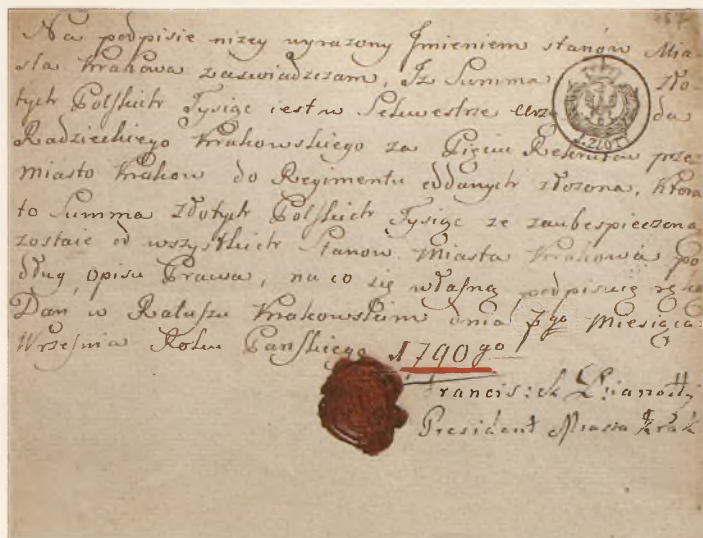 Na podpisie niżey wyrażony Jmieniem stanów Mia-
sta Krakowa zaswiadczam, Jż Summa Zło-
tych Polskich Tysiąc iest w Sekwestrze Urzę du
Radzieckiego Krakowskiego za Pięciu Rekrutów prze
miasto Krakow do Regimentu oddanych złożona, która
to Summa Złotych Polskich Tysiąc ze zaubespieczona
zostaie od wszystkich Stanow Miasta Krakowa po
dług opisu Prawa, na co się własną podpisuię ręką
Dan w Ratuszu Krakowskim dnia 7go Miesiąca
Wrzesnia Roku Pańskiego 1790go
Francis: ek
President Miasta Krak
ZŁOT
167